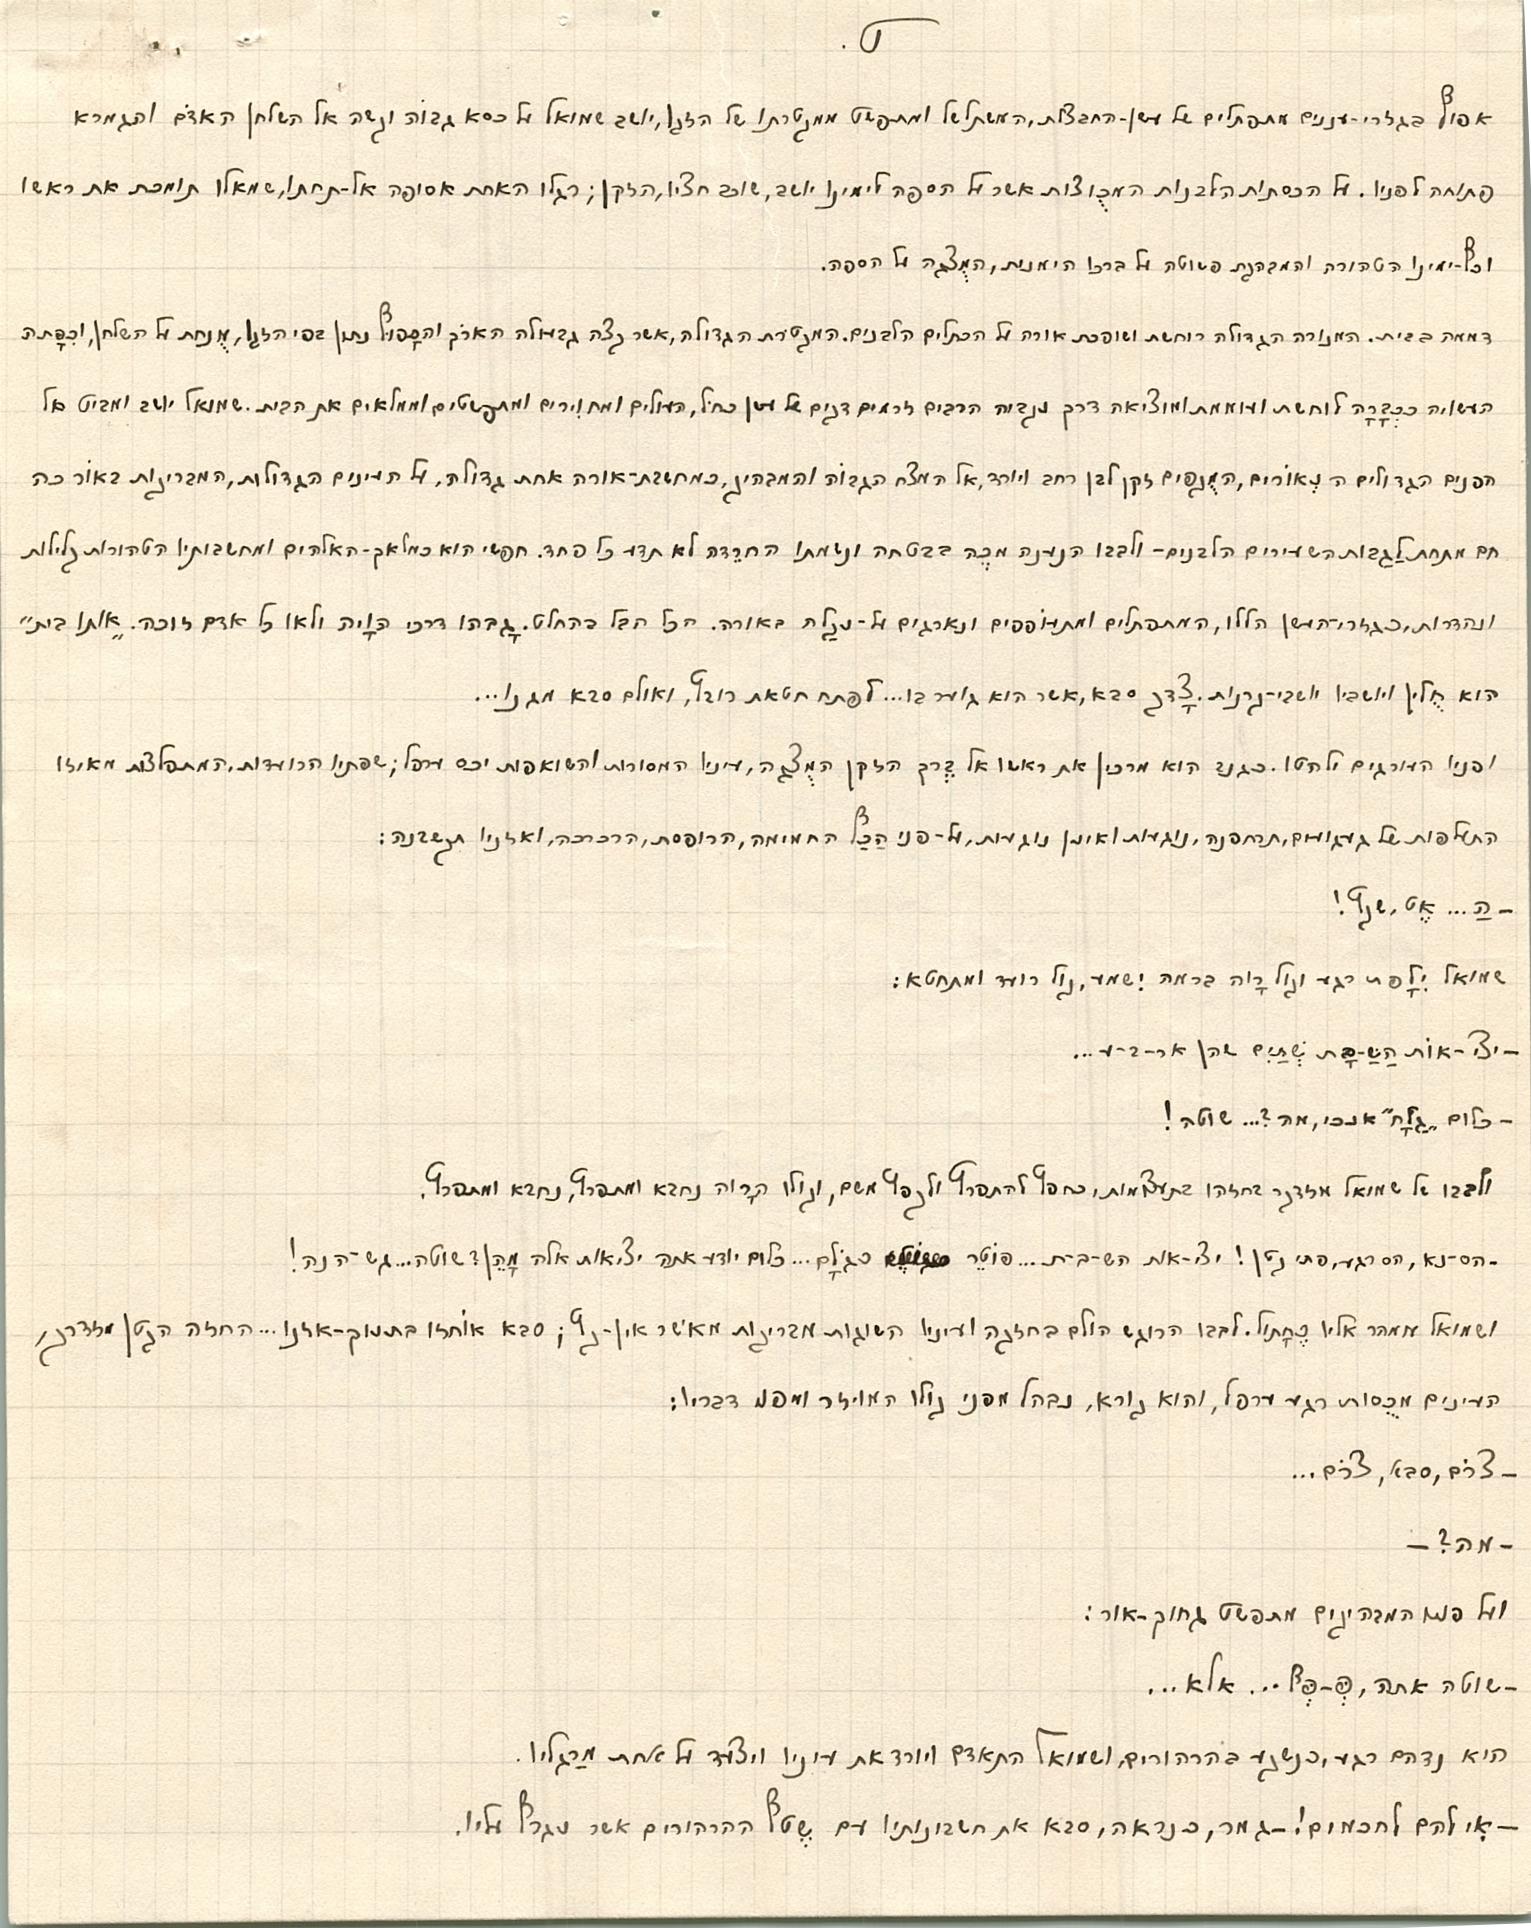 ט.
אפוף בגזרי-עננים מתפתלים של עשן-החבצלת, המשתלשל ומתפשט ממקטרתו של הזקן, יושב שמואל על כסא גבוה ונשה אל השלחן האדם והגמרא
פתוחה לפניו. על הכסתות הלבנות המכֻוצות אשר על הספה לימינו יושב, שוכב חציו, הזקן; רגלו האחת אסופה אל-תחתו, שמאלו תומכת את ראשו
וכף-ימינו הטהורה והמבהקת פשוטה על ברכו הימנית, המֻצגה על הספה.
דממה בבית. המנורה הגדולה רוחשת ושופכת אורה על הכתלים הלבנים. המקטרת הגדולה, אשר קצה גבעולה הארֹך והכָפוף נתון בפי הזקן, מֻנחת על השלחן, וכִפָּתה
העשויה ככְבָרָה לוחשת ועוממת ומוציאה דרך נקביה הרבים זרמים דקים של עשן כחֹל, העולים ומחוירים ומתפשטים וממלאים את הבית. שמואל יושב ומביט אל
הפנים הגדולים הנְאורים, המֻקפים זקן לבן רחב ויורד, אל המצח הגבוֹה והמבהיק, כמחשבת-אורה אחת גדולה, על העינים הגדולות, המבריקות באוֹר כה
חם מתחת לַגַבות השעירים הלבנים- ולבבו הנענה מַכֶה בבטחה ונשמתו החרֵדה לא תדע כל פחד. חפשי הוא כמלאך-האלהים ומחשבותיו הטהורות קלילות
ונהדרות, כגזרי-העשן הללו, המתפתלים ומתעוֹפפים ונארגים על-נקַלה באורה. הכל הבל בהחלט. גָבהו דרכי הוָיה ולאו כל אדם זוכה. „אותו בית״
הוא חֻלין ויושביו יושבי-קרנות. צָדק סבא, אשר הוא גוער בו... לפתח חטאת רובץ, ואולם סבא מגנו...
ופניו העורגים ילהטו. כגנב הוא מרכין את ראשו אל בֶרך הזקן המֻצגה, עיניו המסורות והשואפות יכס ערפל; שפתיו הרועדות, המתפלצות מאיזו
התעלפות של געגועים, תרחפנה, נוגעות ואינן נוגעות, על-פני הַכַף החמימה, הרופסת, הרכרכה, ואזניו תקשבנה:
– הַ... אֶט, שקץ!
שמואל יִלָפת רגע וקול רָוה ברמה ישמע, קול רועד ומתחטא:
– יצי-אוֹת הַשַ-בָּת שְׁתַּיִם שהן אר-ב-ע...
– כלום „גַלָח״ אנכי, מה?... שוטה!
ולבבו של שמואל מזדקר בחזהו בתעצמות, כחפץ להתפרץ ולקפץ משם, וקולו הרָוה נחבא ומתפרץ, נחבא ומתפרץ.
– הס-נא, הס רגע, פתי קטן! יצי-אות הש-ב-ת... פוטֵר כגֹלָם... כלום יודע אתה יציאות אלה מָהֵן? שוטה... גש-הנה!
ושמואל ממהר אליו כֶחָתול. לבבו הרוגש הולם בחזקה ועיניו השוגות מבריקות מאשר אין-קץ; סבא אוֹחזו בתנוך-אזנו... החזה הקטן מזדרק,
העינים מכֻסות רגע ערפל, והוא קורא, נבהל מפני קולו המוזר ומפני דבריו:
– צרֹם, סבא, צרֹם...
– מה? –
ועל פניו המבהיקים מתפשט צחוק-אור:
– שוטה אתה, פֶ-פֶף... אלא...
הוא נדהם רגע, כנשקע בהרהורים, ושמואל התאדם ויורד את עיניו ויצעד על אחת מרַגליו.
– אִי להם לחכמים! – גמר, כנראה, סבא את חשבונותיו עם שֶטף ההרהורים אשר נגרף עליו.